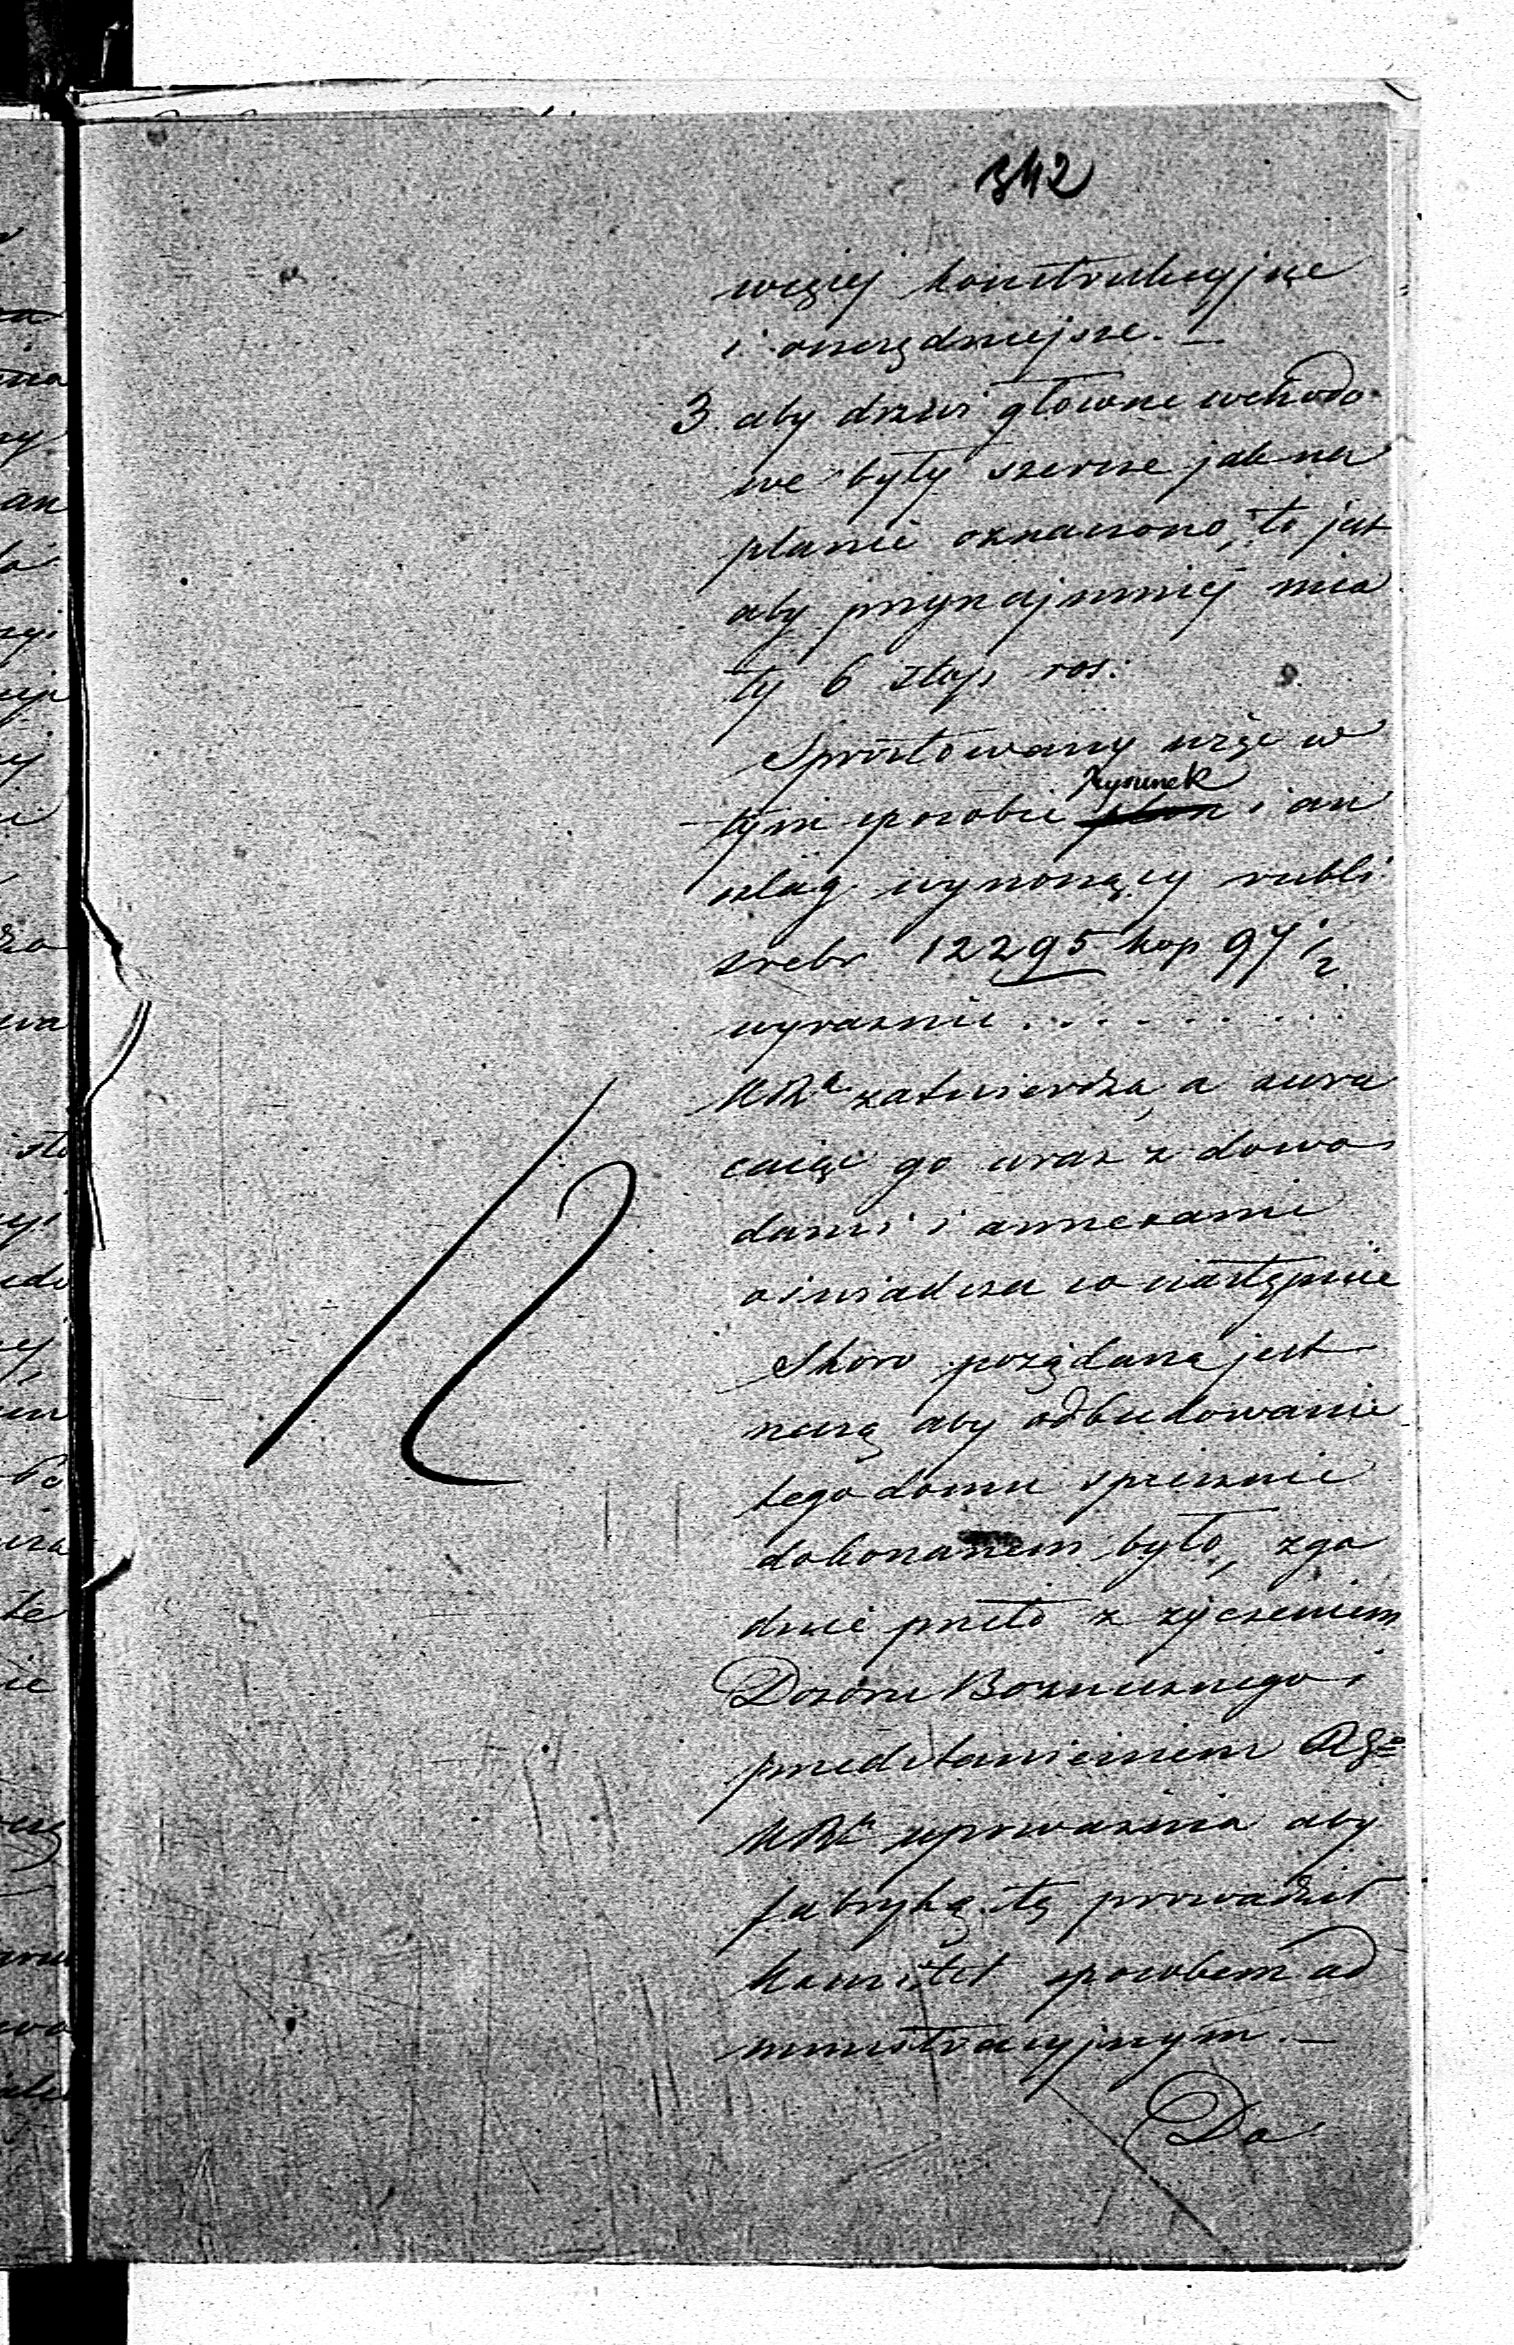 342
więcej konstrukcyjne
i oszczędniejsze. —
3. aby drzwi główne wchodo
we były szersze jak na
planie oznaczono, to jest
aby przynajmniej mia
ły 6 stóp ros:
Sprostowany w
Rysunek
tym sposobie plan i an
szlag wynoszący rubli
srebr 12295 kop 97 1/2
wyraznie . . . . . . . . .
zatwierdza, a zwra
cając go wraz z dowo
dami i annexami
oświadcza co następuje
Skoro pożądaną jest
rzeczą aby odbudowanie
tego domu spiesznie
dokonanem było, zgo
dnie przeto z życzeniem
Dozoru Boznicznego i
przedstawieniem
upoważnia aby
fabrykę tę prowadził
komitet sposobem ad
ministracyjnym. —
Do